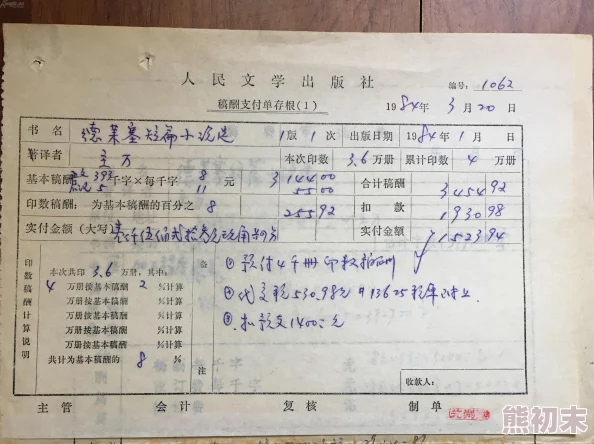 人民文学出版社
编号: 1062
稿酬支付单存根(1)
1984年3月20日
书名 德莱塞短篇小说选 1版1次 出版日期 1984年1月 日
著译者 主万 本次印数 3.6万册 累计印数 4万册
基本稿酬 393千字×每千字 8元 3144.00 合计稿酬 345492
5 11 5500
印数稿酬:为基本稿酬的百分之 8 25592 扣款 193098
实付金额(大写) 壹仟伍佰贰拾叁元玖角肆分 实付金额 152394
印数稿酬计算说明
本次共印3.6万册,其中:
4万册按基本稿酬 2%计算
万册按基本稿酬 %计算
万册按基本稿酬 %计算
万册按基本稿酬 %计算
共计为基本稿酬的 8%
备注
①预付4千册印数稿酬
②代交税530.98元
③扣预支1400.-元
收款人:
主管 会计 复核 制单
熊初末